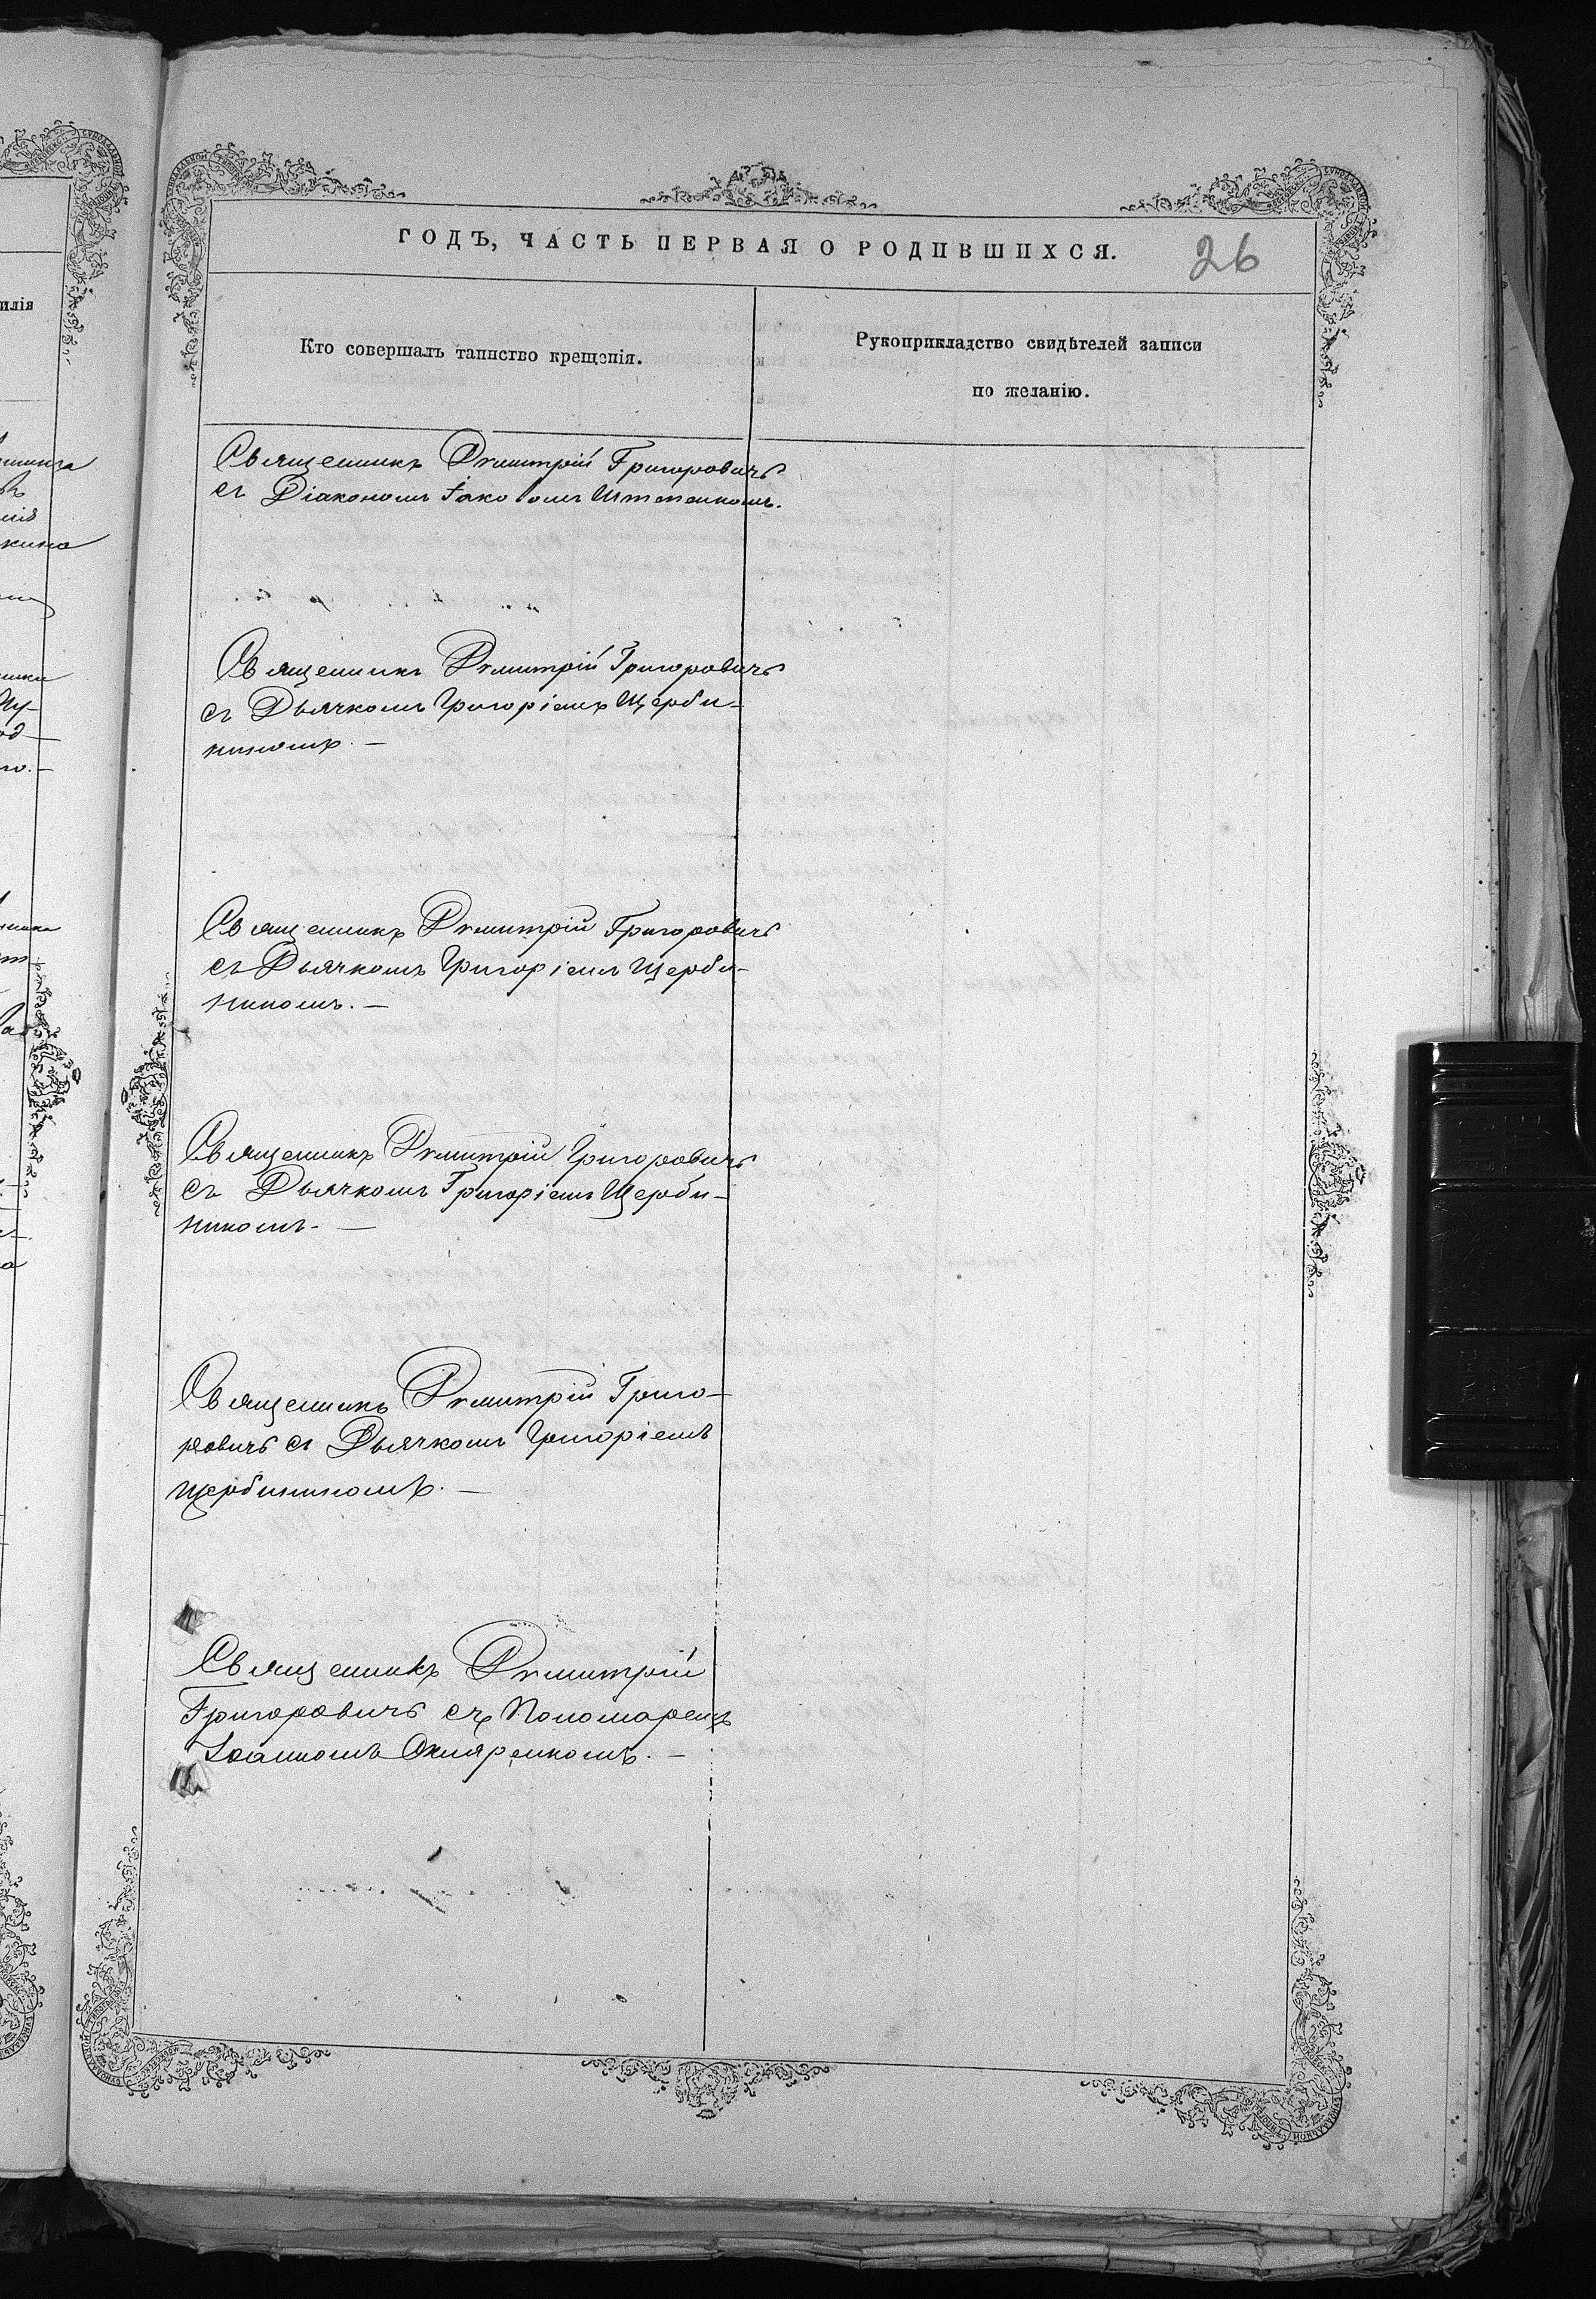 ГОДЪ, ЧАСТЬ ПЕРВАЯ О РОДИВШИХСЯ.
26
илія
Кто совершалъ таинство крещенія.
Рукоприкладство свидѣтелей записи
по желанію.
Священникъ Димитрій Григоровичъ
съ Діакономъ Іаковомъ Штепенкомъ.
Священникъ Димитрій Григоровичъ
съ Дьячкомъ Григоріемъ Щерби-
ниномъ. —
Священникъ Димитрій Григоровичъ
съ Дьячкомъ Григоріемъ Щерби-
ниномъ. —
Священникъ Димитрій Григоровичъ
съ Дьячкомъ Григоріемъ Щерби-
ниномъ. —
Священникъ Димитрій Григо-
ровичъ съ Дьячкомъ Григоріемъ
Щербининомъ. —
Священникъ Димитрій
Григоровичъ съ Пономаремъ
Іоанномъ —